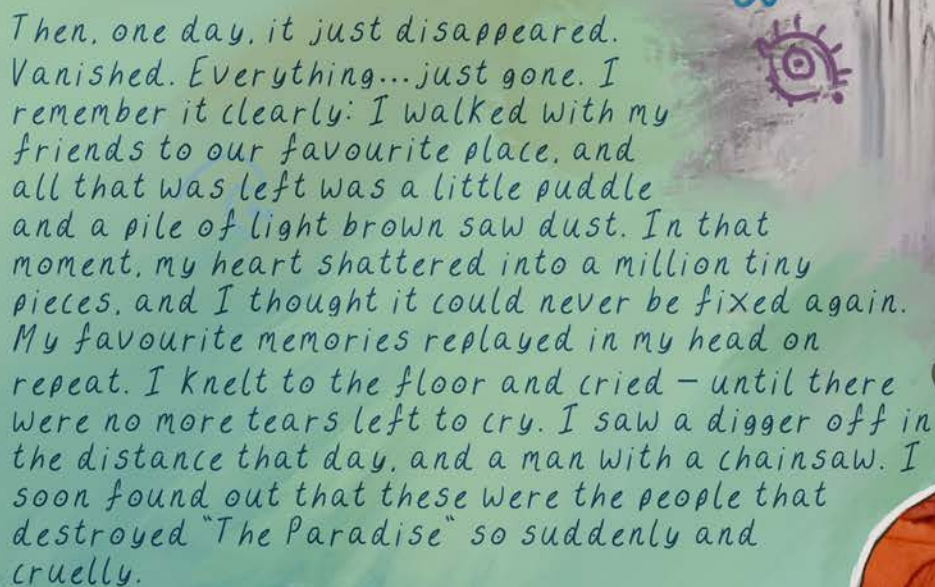 Then, one day, it just disappeared.
Vanished. Everything...just gone. I
remember it clearly: I walked with my
friends to our favourite place, and
all that was left was a little puddle
and a pile of light brown saw dust. In that
moment, my heart shattered into a million tiny
pieces, and I thought it could never be fixed again.
My favourite memories replayed in my head on
repeat. I knelt to the floor and cried – until there
were no more tears left to cry. I saw a digger off in
the distance that day, and a man with a chainsaw. I
soon found out that these were the people that
destroyed "The Paradise" so suddenly and
cruelly.